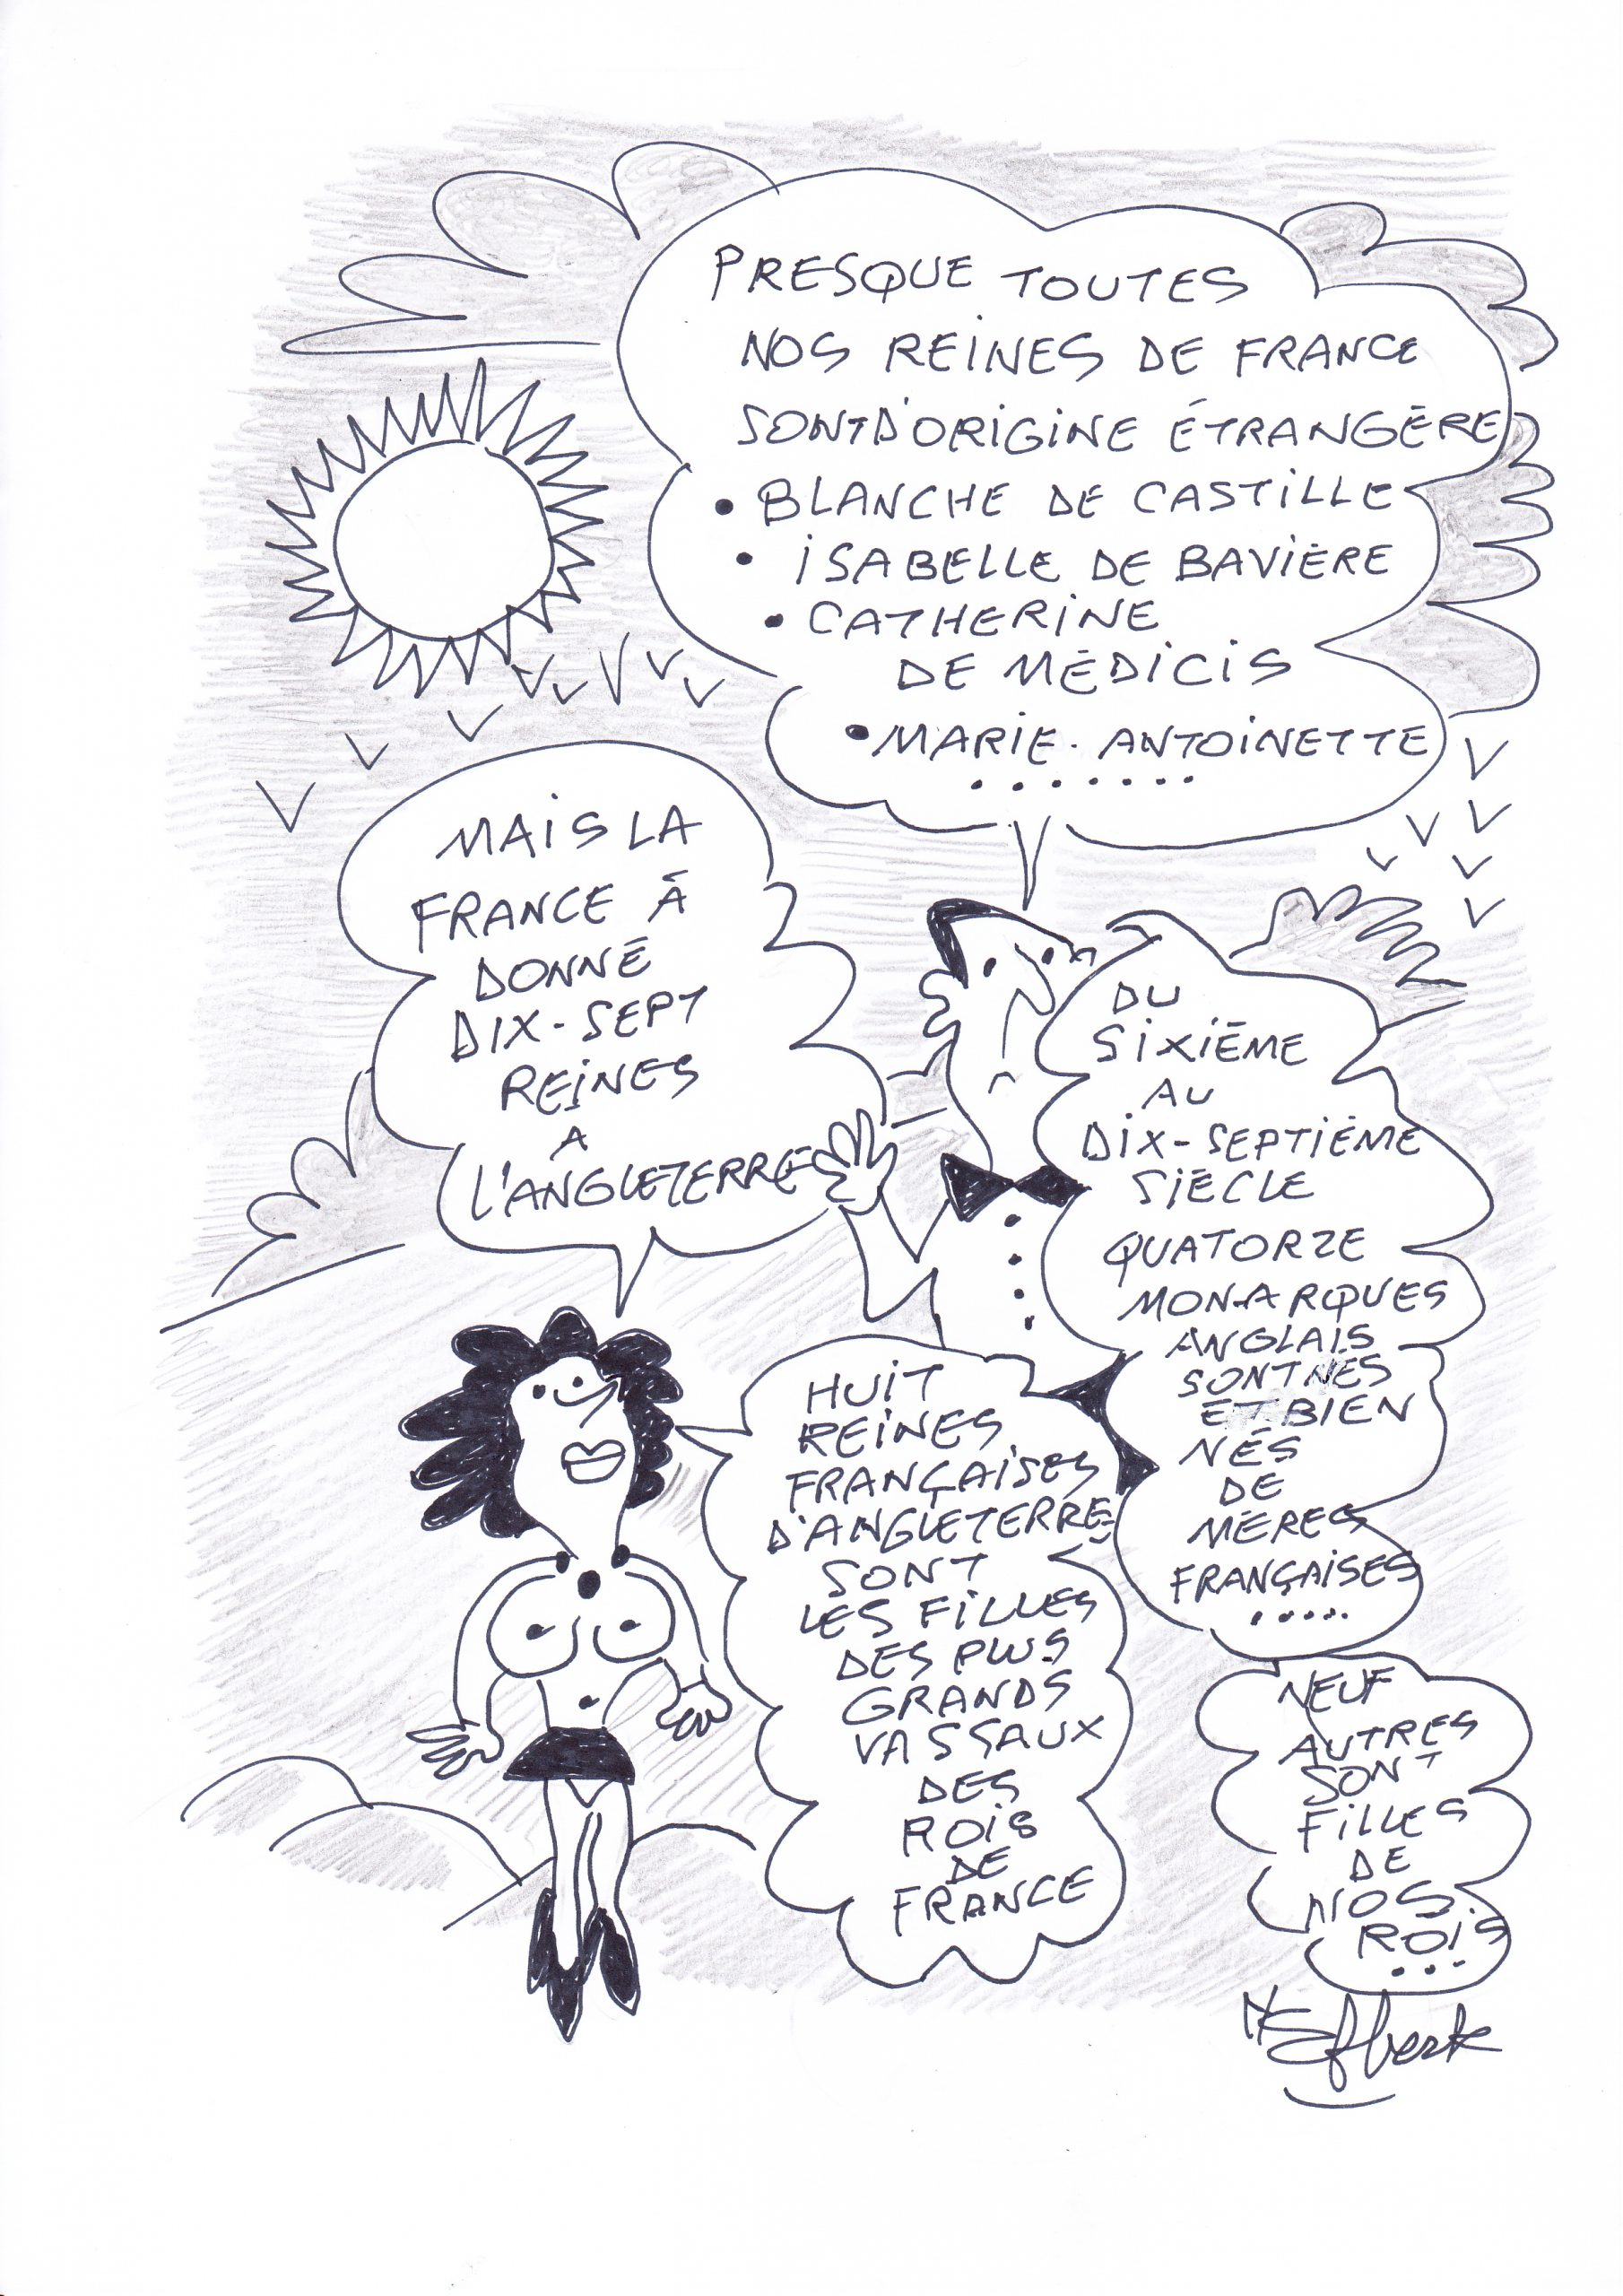 PRESQUE TOUTES
NOS REINES DE FRANCE
SONT D'ORIGINE ÉTRANGÈRE
• BLANCHE DE CASTILLE
• ISABELLE DE BAVIÈRE
• CATHERINE
DE MÉDICIS
• MARIE-ANTOINETTE
.......
MAIS LA
FRANCE À
DONNÉ
DIX-SEPT
REINES
A
L'ANGLETERRE
DU
SIXIÈME
AU
DIX-SEPTIÈME
SIÈCLE
QUATORZE
MONARQUES
ANGLAIS
SONT NÉS
ET BIEN
NÉS
DE
MÈRES
FRANÇAISES
.....
HUIT
REINES
FRANÇAISES
D'ANGLETERRE
SONT
LES FILLES
DES PLUS
GRANDS
VASSAUX
DES
ROIS
DE
FRANCE
NEUF
AUTRES
SONT
FILLES
DE
NOS
ROIS
...